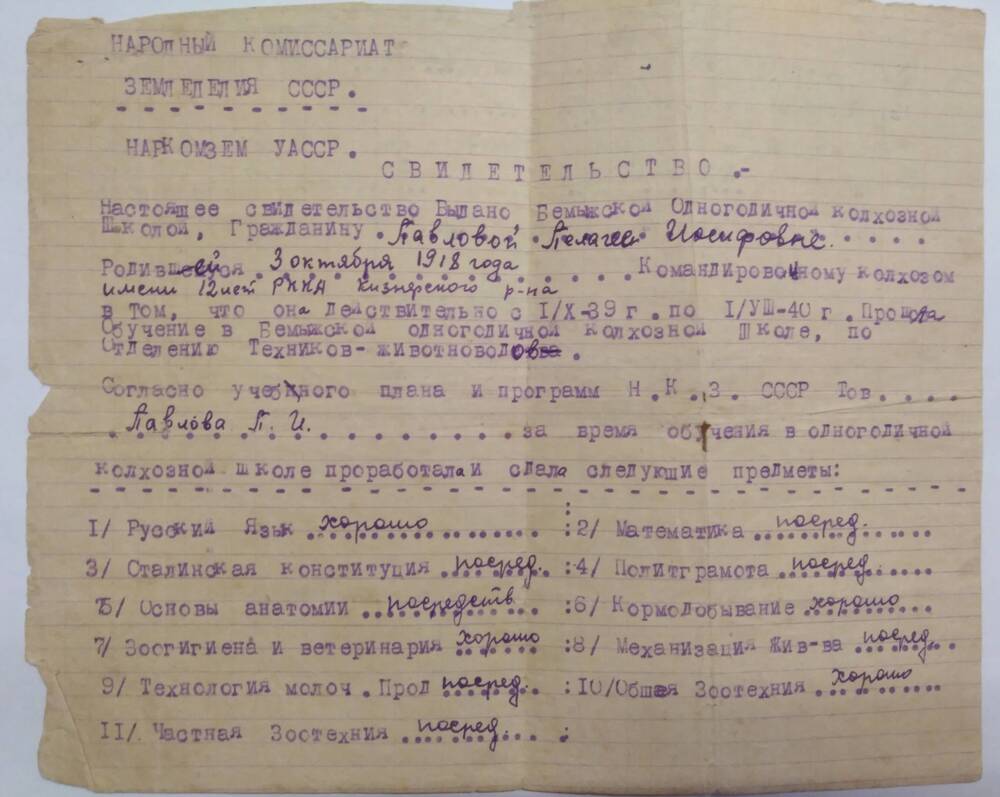 НАРОДНЫЙ КОМИССАРИАТ
ЗЕМЛЕДЕЛИЯ СССР.
НАРКОМЗЕМ УАССР.
СВИДЕТЕЛЬСТВО.-
Настоящее свидетельство Выдано Бемыжской Одногодичной колхозной
Школой, Гражданину Павловой Пелагеи Иосифовне.....
Родившейся 3 октября 1918 года .......Командировочному колхозом
имени 12 лет РККА Кизнерского р-на
в том, что она Действительно с I/X-39 г. по I/УШ-40 г. Прошла
Обучение в Бемыжской одногодичной колхозной Школе, по
Отделению Техников-животноводов.
Согласно учебного плана и программ Н.К.З. СССР Тов....
Павлова П. И. .......за время обучения в одногодичной
колхозной школе проработала и сдала следующие предметы:
I/ Русский Язык хорошо :2/ Математика посред.
3/ Сталинская конституция посред. :4/ Политграмота посред.
5/ Основы анатомии посредств :6/ Кормодобывание хорошо
7/ Зоогигиена и ветеринария хорошо :8/ Механизация Жив-ва посред.
9/ Технология молоч. Прод посред. :I0/Общая Зоотехния хорошо
II/ Частная Зоотехния посред. :